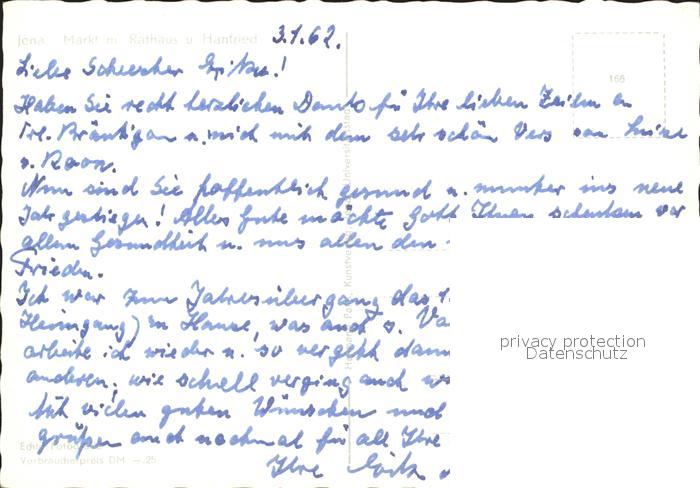 Jena Markt m. Rathaus u. Hanfried 3.1.62.
166
Liebe Schwester
Haben Sie recht herzlichen Dank für Ihre lieben Zeilen an
Frl. Bräutigam u. mich mit dem sehr schön Vers von Luise
v. Roon.
Nun sind Sie hoffentlich gesund u. munter ins neue
Jahr gestiegen! Alles Gute möchte Gott Ihnen schenken vor
allem Gesundheit u. uns allen den
Frieden.
Ich war zum Jahresübergang das 1.
Heimgang) zu Hause, was auch s. Va
arbeite ich wieder u. so vergeht dann
anderen, wie schnell verging auch
Mit vielen guten Wünschen und
grüßen auch nochmal für all Ihre
Ihre
privacy protection
Datenschutz
Echte Fotoc
Verbraucherpreis DM —.25